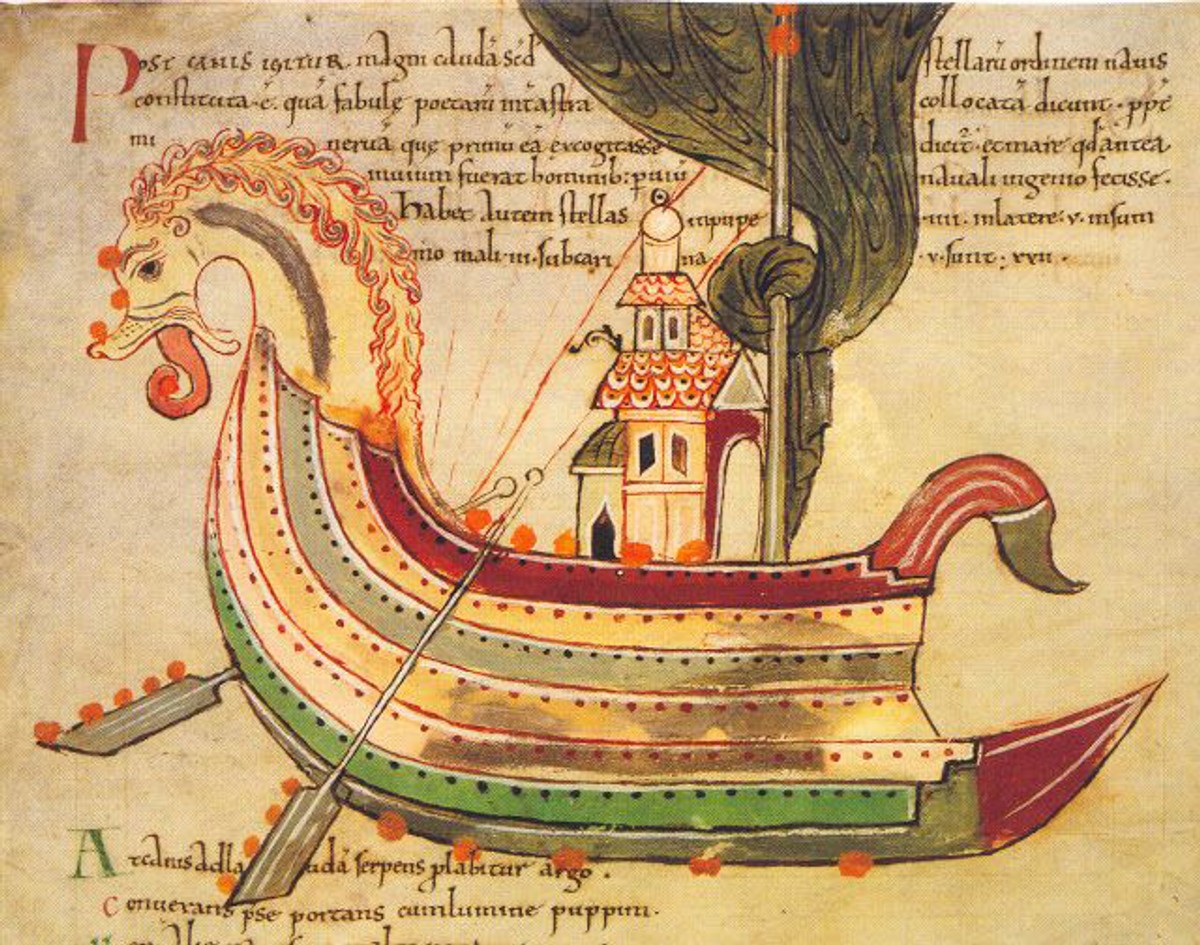 Post canis igitur magni caudā sed stellarū ordinem nauis
constituta·ē· quā fabulę poetarū int̄ astra collocatā dicunt · ppt̄
mi neruā quę primū eā excogitasse dicit̄ · et mare qđ antea
inuium fuerat hominib; puiū nauali ingenio fecisse ·
Habet autem stellas in pupe ·iiii· in latere · v · in sum
mo mali ·iii· sub cari na · v · sunt · xxii ·
At canis ad udā serpens plabitur argo .
Conuerans p̄se portans cum lumine puppim .